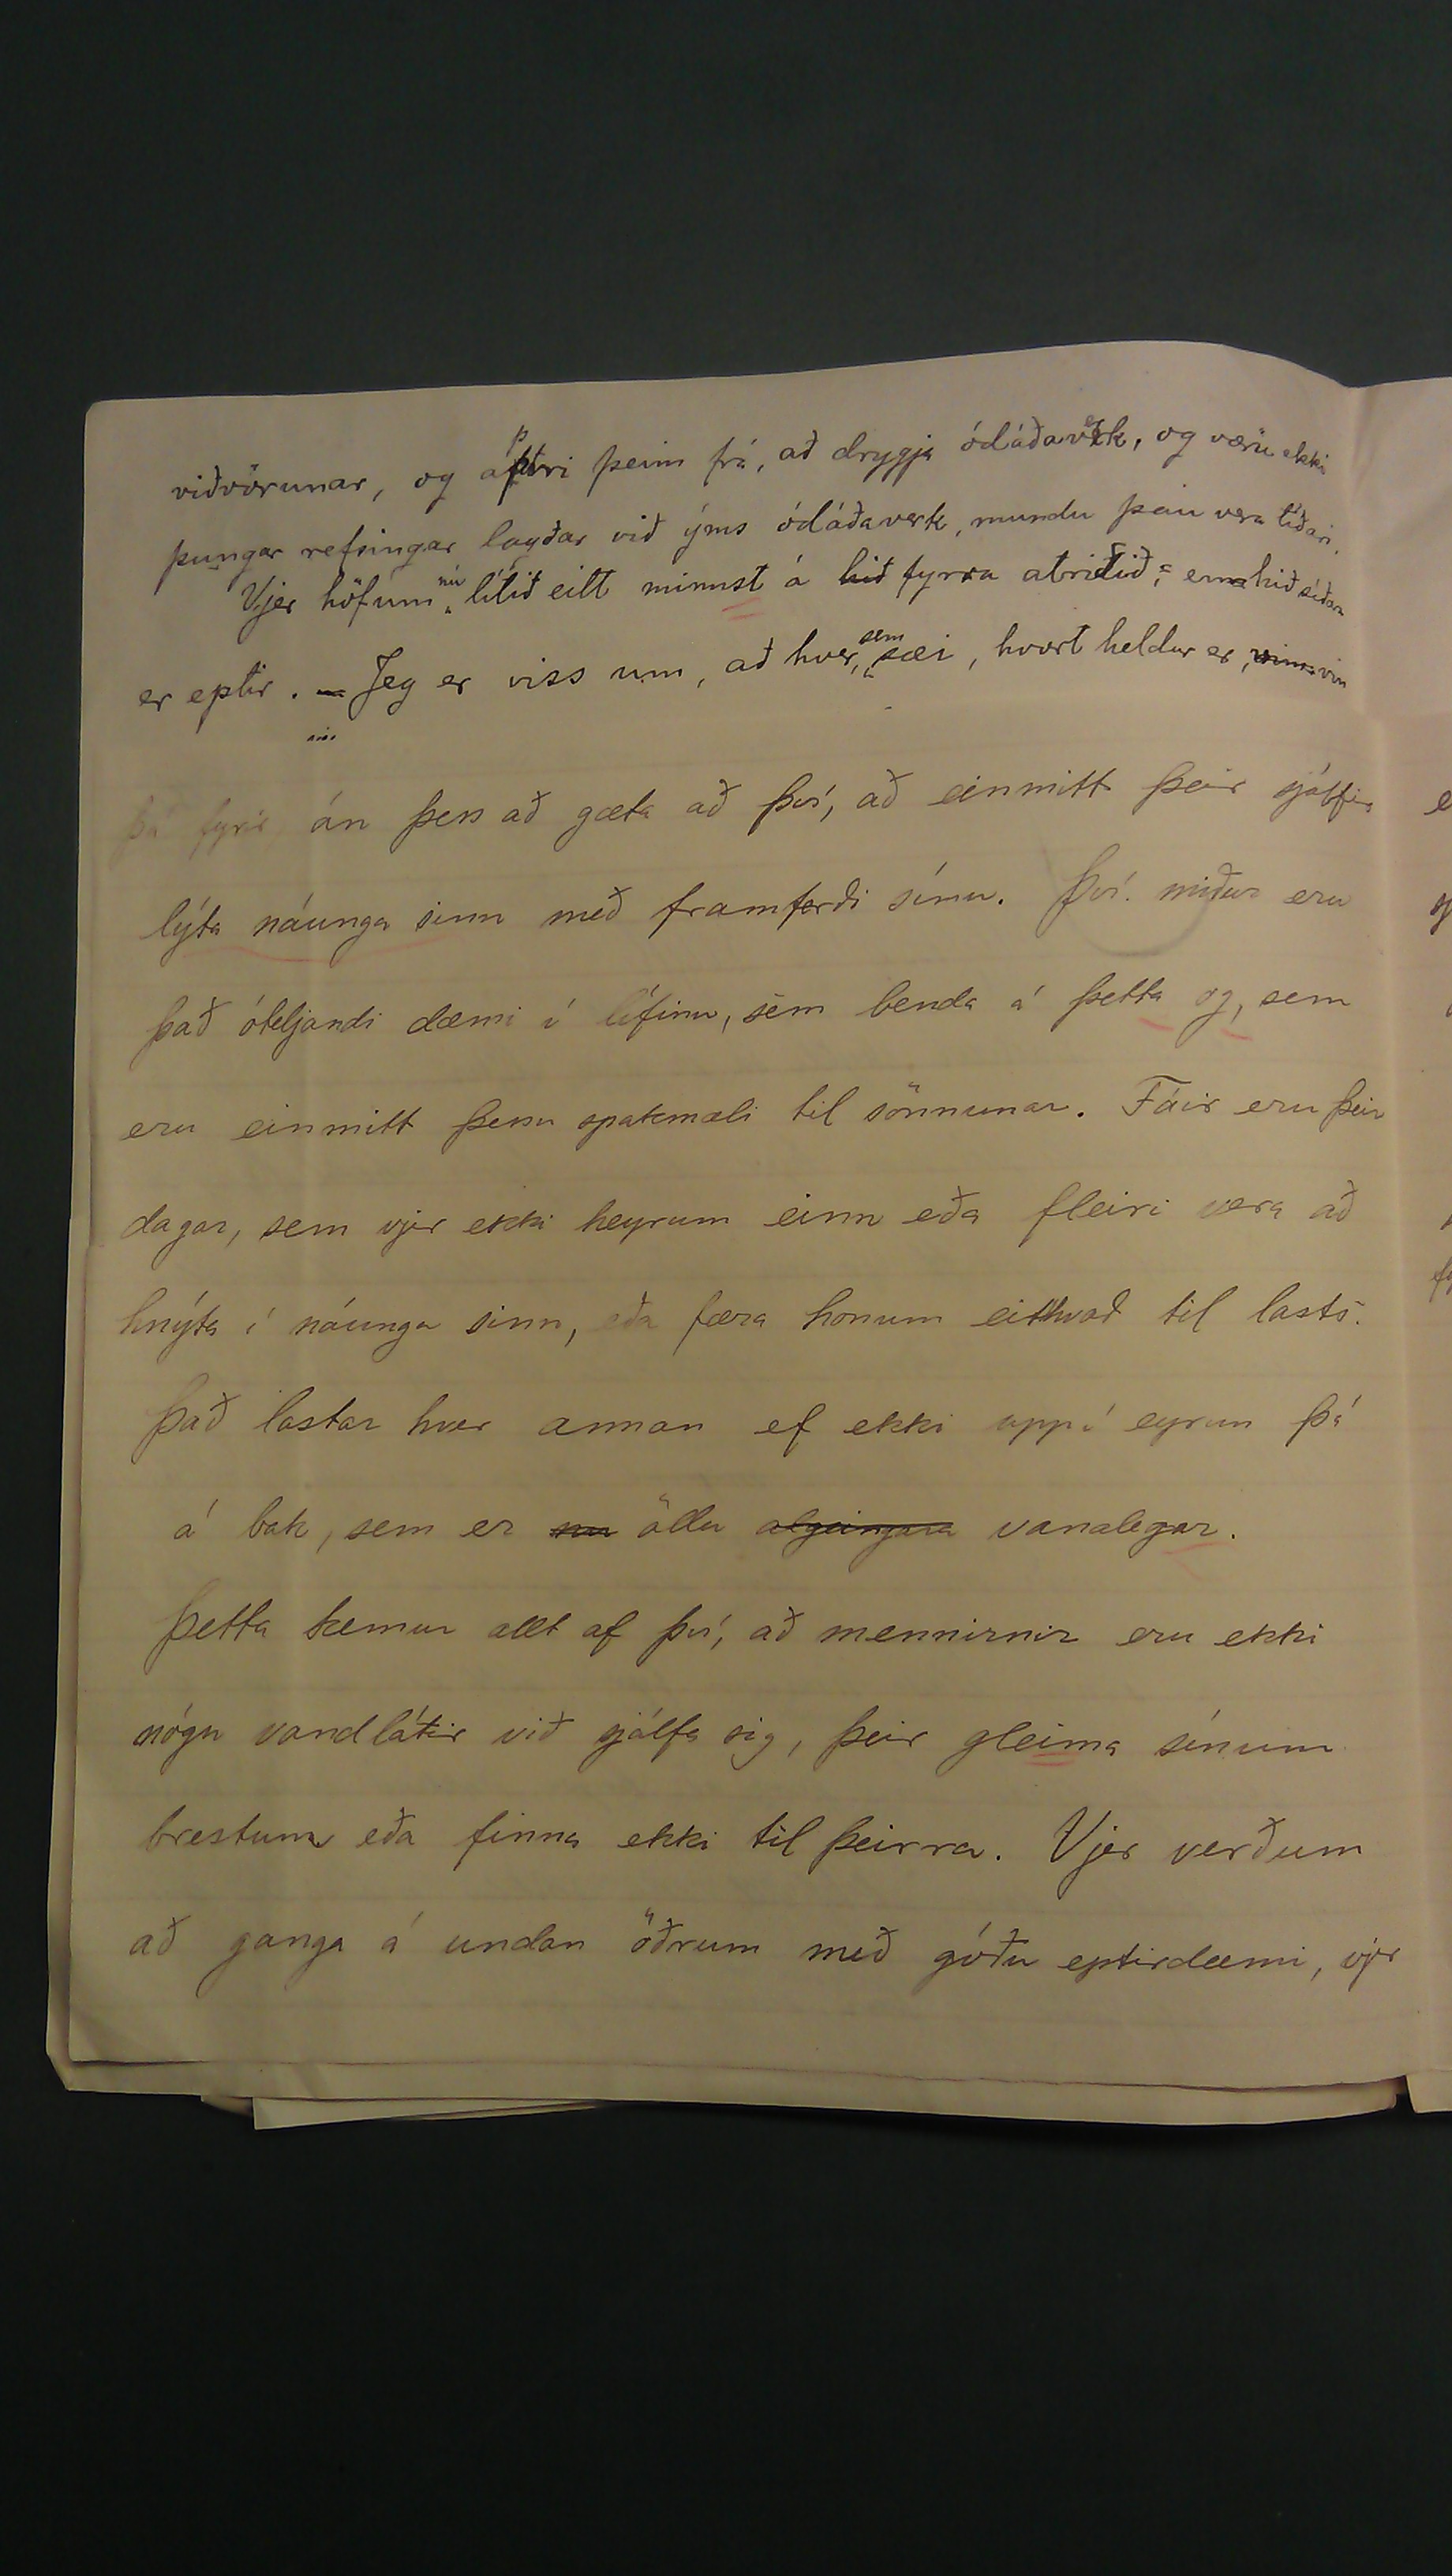 viðvörunar, og aptri þeim frá, að drygja ódáðaverk, og væru ekki
þungar refsingar lagðar við ýms ódáðaverk, mundu þau vera tíðari.
Vjer höfum nú lítið eitt minnst á hið fyrra atriðið; en hið síðara
er eptir. — Jeg er viss um, að hver, sem sæi, hvort heldur er vin
þá fyrir, án þess að gæta að því, að einmitt þeir sjálfir
lýta náunga sinn með framferði sínu. Því miður eru
það óteljandi dæmi í lífinu, sem benda á þetta og, sem
eru einmitt þessu spakmæli til sönnunar. Fáir eru þeir
dagar, sem vjer ekki heyrum einn eða fleiri vera að
hnýta í náunga sinn, eða færa honum eitthvað til lasts.
Það lastar hver annan ef ekki upp í eyrun þá
á bak, sem er öllu algeingara vanalegar.
Þetta kemur allt af því, að mennirnir eru ekki
nógu vandlátir við sjálfa sig, þeir gleima sínum
brestum eða finna ekki til þeirra. Vjer verðum
að ganga á undan öðrum með góðu eptirdæmi, vjer